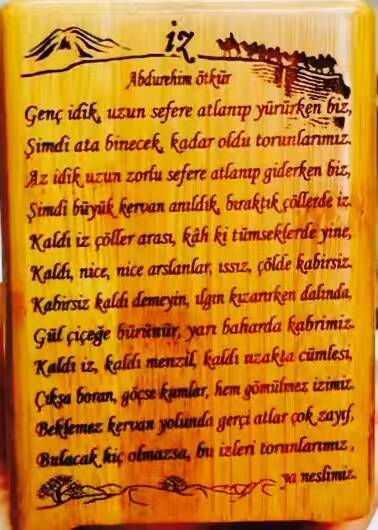 iz
Abdurehim ötkür
Genç idik, uzun sefere atlanıp yürürken biz,
Şimdi ata binecek, kadar oldu torunlarımız.
Az idik uzun zorlu sefere atlanıp giderken biz,
Şimdi büyük kervan anıldık, bıraktık çöllerde iz.
Kaldı iz çöller arası, kâh ki tümseklerde yine,
Kaldı, nice, nice arslanlar, ıssız, çölde kabirsiz.
Kabirsiz kaldı demeyin, ılgın kızarırken dalında,
Gül çiçeğe bürünür, yarı baharda kabrimiz.
Kaldı iz, kaldı menzil, kaldı uzakta cümlesi,
Çıksa boran, göçse kumlar, hem gömülmez izimiz.
Beklemez kervan yolunda gerçi atlar çok zayıf,
Bulacak hiç olmazsa, bu izleri torunlarımız,
ya neslimiz.